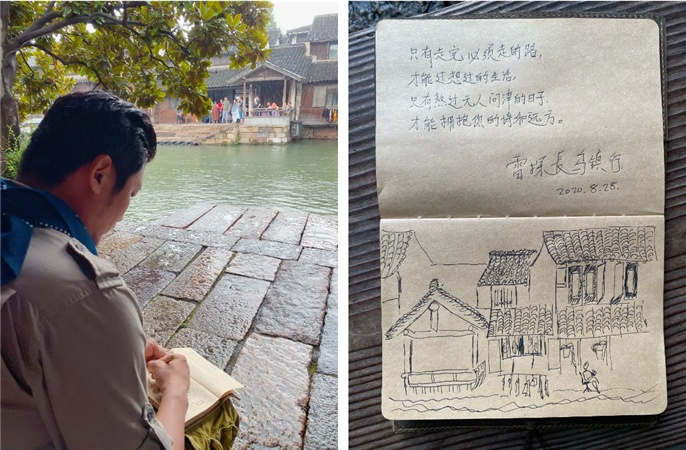 只有走完必须走的路,
才能过想过的生活,
只有熬过无人问津的日子
才能拥抱你的诗和远方。
雷探長乌镇行
2020.8.28.